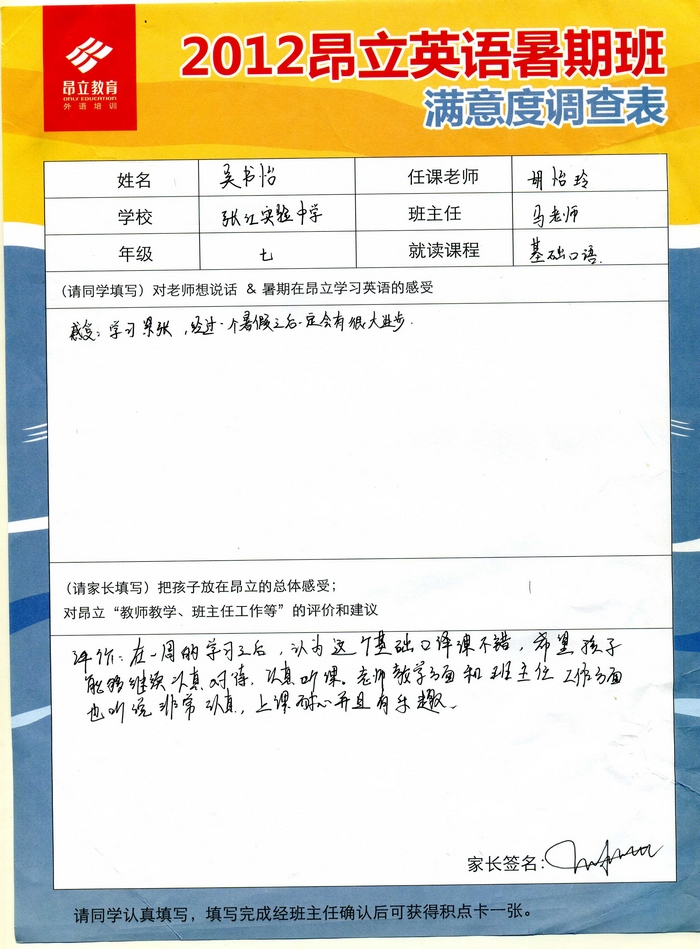 昂立教育
ONLY EDUCATION
外语培训
2012昂立英语暑期班
满意度调查表
姓名 吴书怡 任课老师 胡怡玲
学校 张江实验中学 班主任 马老师
年级 七 就读课程 基础口语
(请同学填写) 对老师想说话 & 暑期在昂立学习英语的感受
感受: 学习紧张,经过一个暑假之后一定会有很大进步.
(请家长填写) 把孩子放在昂立的总体感受;
对昂立“教师教学、班主任工作等”的评价和建议
评价: 在一周的学习之后,认为这个基础口译课不错,希望孩子
能够继续认真对待,认真听课。老师教学方面和班主任工作方面
也听说非常认真,上课耐心并且有乐趣。
家长签名:
请同学认真填写,填写完成经班主任确认后可获得积点卡一张。